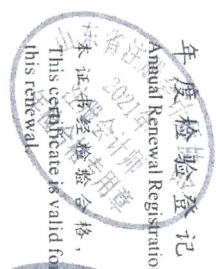 年度检验登记
Annual Renewal Registratio
本证书经检验合格，
This certificate is valid fo
this renewal.
省注册会计
2021年
注册会计师
专用章